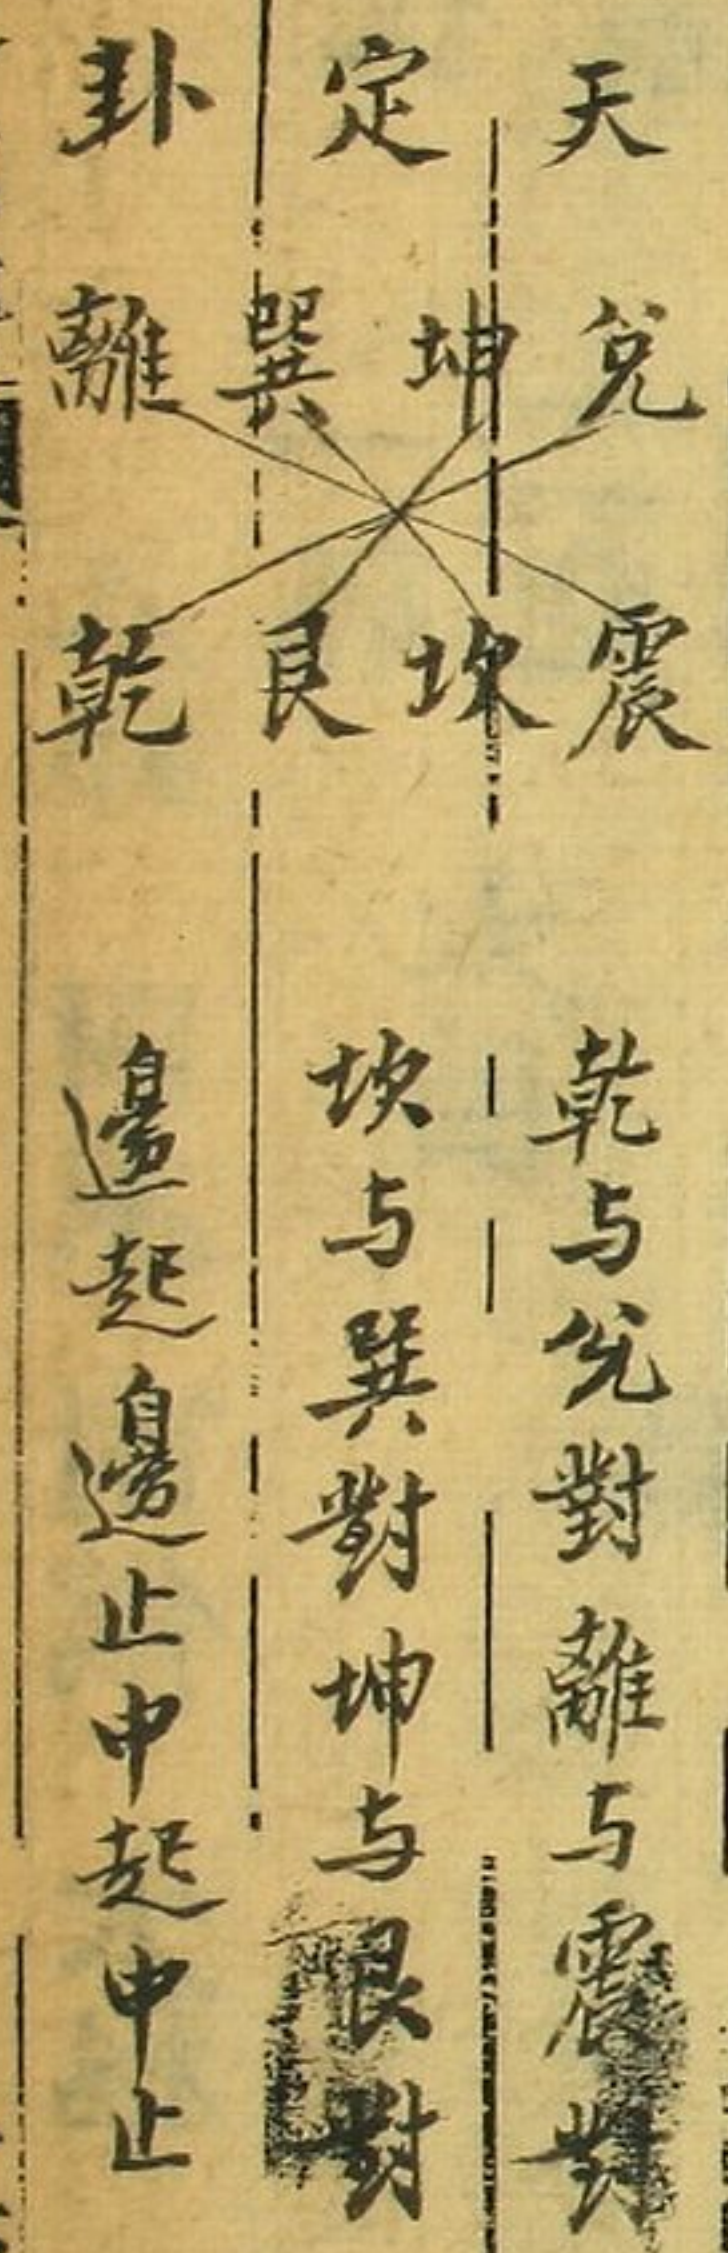 天定卦
兌坤巽離
震坎艮乾
乾与兊對離与震對
坎与巽對坤与艮對
邊起邊止中起中止